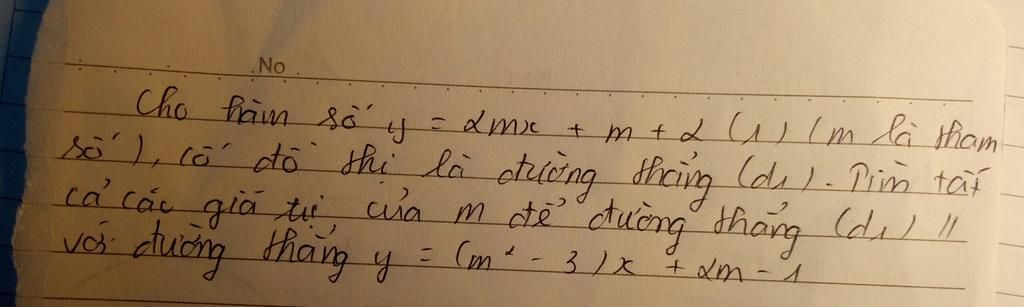 No
Cho hàm số y = 2mx + m + 2 (1) (m là tham
số), có đồ thị là đường thẳng (d1). Tìm tất
cả các giá trị của m để đường thẳng (d1) //
với đường thẳng y = (m² - 3)x + 2m - 1